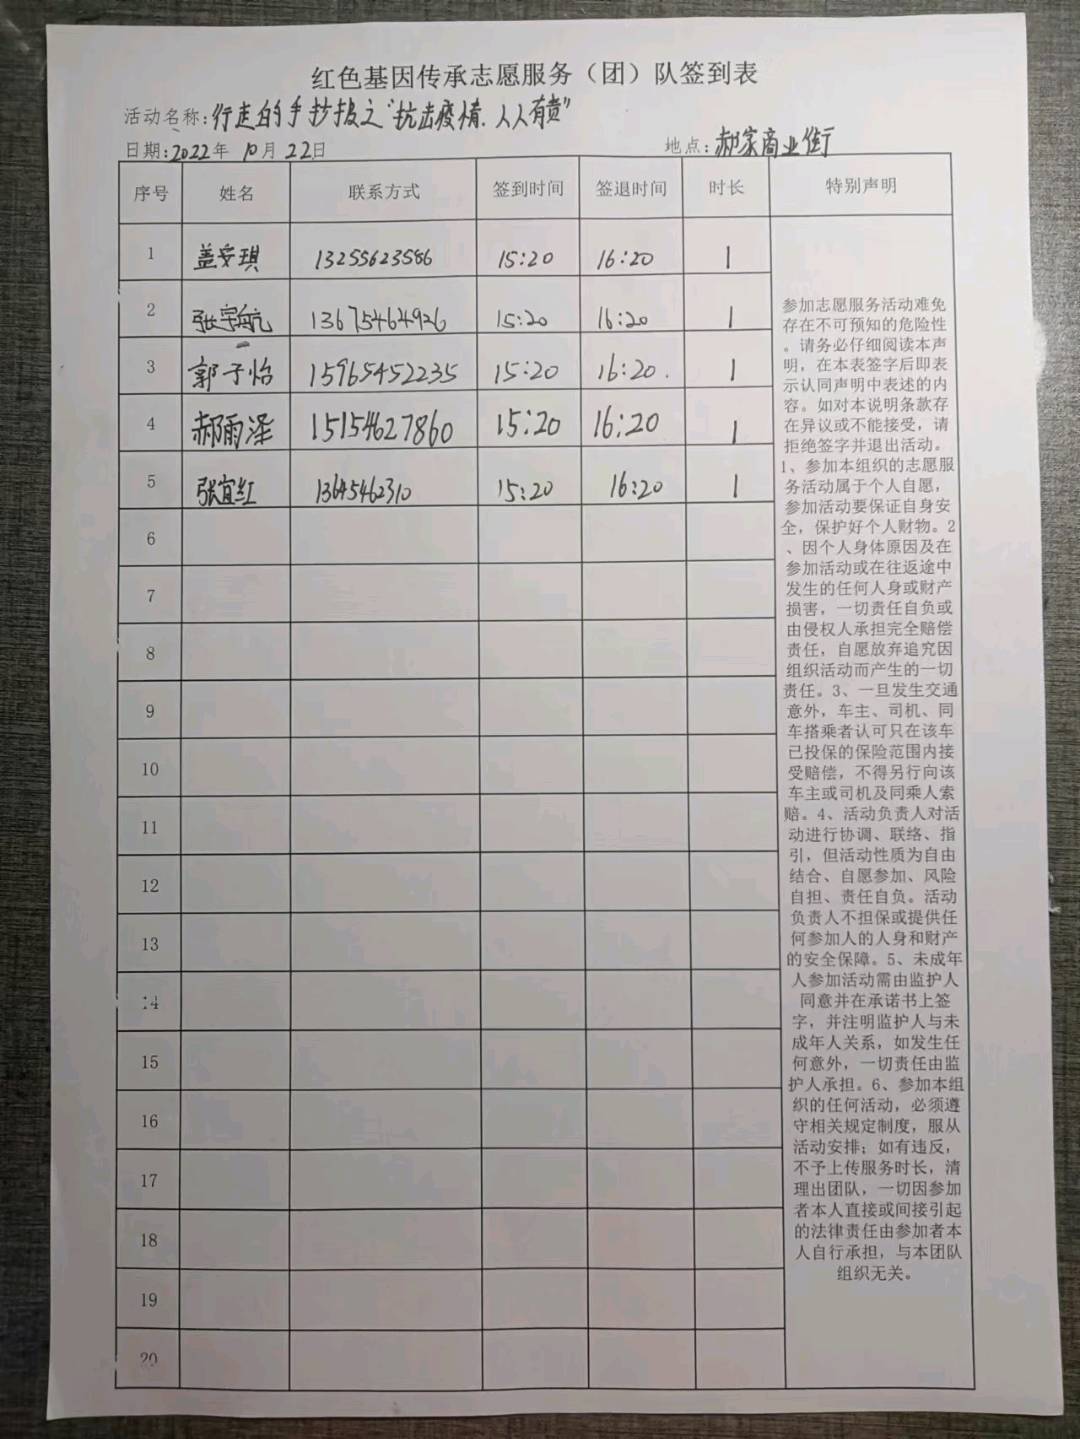 红色基因传承志愿服务（团）队签到表
活动名称:行走的手抄报之"抗击疫情.人人有责"
日期:2022年 10月 22日 地点:郝家商业街
序号 姓名 联系方式 签到时间 签退时间 时长 特别声明
1 盖安琪 13255623586 15:20 16:20 1
2 张宇航 13675464926 15:20 16:20 1
3 郭子怡 15965452235 15:20 16:20. 1
4 郝雨泽 15154627860 15:20 16:20 1
5 张宜红 13645462310 15:20 16:20 1
6
7
8
9
10
11
12
13
14
15
16
17
18
19
20
参加志愿服务活动难免
存在不可预知的危险性
。请务必仔细阅读本声
明，在本表签字后即表
示认同声明中表述的内
容。如对本说明条款存
在异议或不能接受，请
拒绝签字并退出活动。
1、参加本组织的志愿服
务活动属于个人自愿，
参加活动要保证自身安
全，保护好个人财物。2
、因个人身体原因及在
参加活动或在往返途中
发生的任何人身或财产
损害，一切责任自负或
由侵权人承担完全赔偿
责任，自愿放弃追究因
组织活动而产生的一切
责任。3、一旦发生交通
意外，车主、司机、同
车搭乘者认可只在该车
已投保的保险范围内接
受赔偿，不得另行向该
车主或司机及同乘人索
赔。4、活动负责人对活
动进行协调、联络、指
引，但活动性质为自由
结合、自愿参加、风险
自担、责任自负。活动
负责人不担保或提供任
何参加人的人身和财产
的安全保障。5、未成年
人参加活动需由监护人
同意并在承诺书上签
字，并注明监护人与未
成年人关系，如发生任
何意外，一切责任由监
护人承担。6、参加本组
织的任何活动，必须遵
守相关规定制度，服从
活动安排；如有违反，
不予上传服务时长，清
理出团队，一切因参加
者本人直接或间接引起
的法律责任由参加者本
人自行承担，与本团队
组织无关。